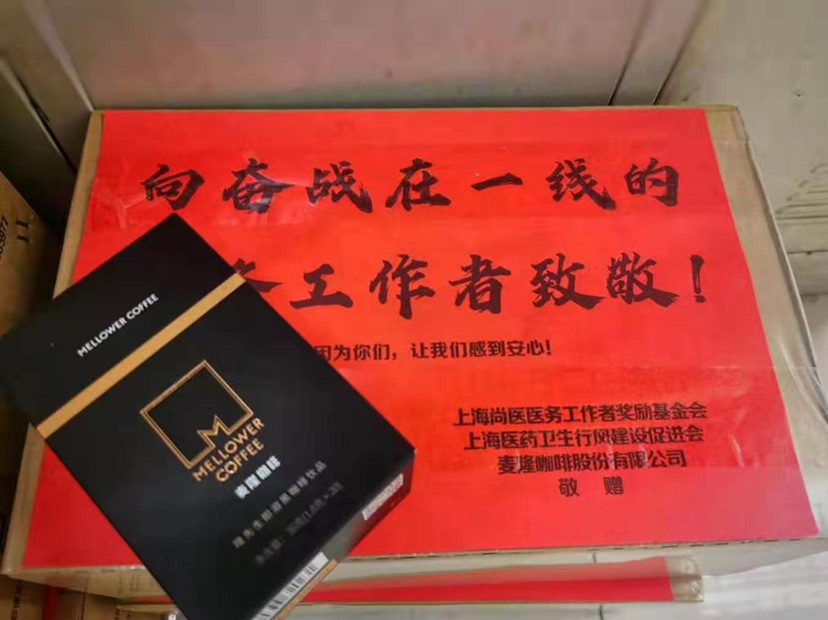 向奋战在一线的
务工作者致敬!
因为你们，让我们感到安心!
上海尚医医务工作者奖励基金会
上海医药卫生行风建设促进会
麦隆咖啡股份有限公司
敬 赠
MELLOWER COFFEE
M
MELLOWER
COFFEE
麦隆咖啡